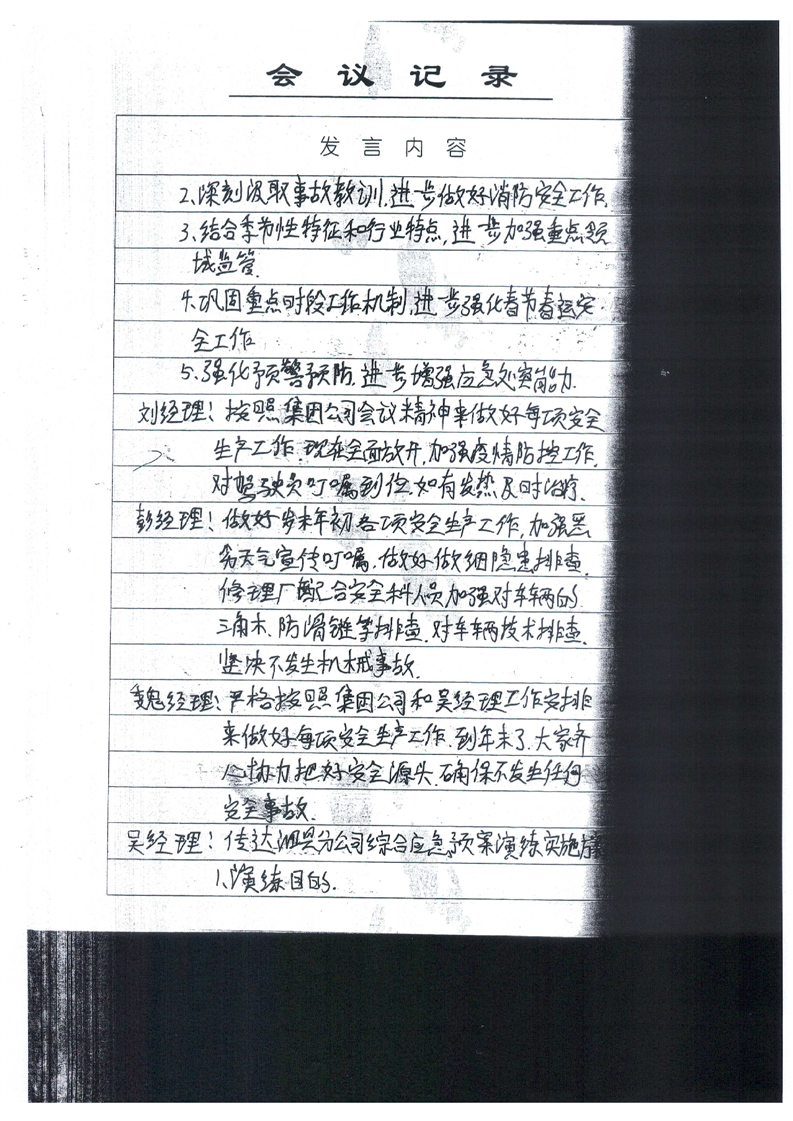 会议记录
发言内容
2、深刻汲取事故教训,进一步做好消防安全工作.
3、结合季节性特征和行业特点,进一步加强重点领
域监管.
4、巩固重点时段工作机制,进一步强化春节春运安
全工作
5、强化预警预防,进一步增强应急处突能力.
刘经理:按照集团公司会议精神来做好每项安全
生产工作.现在全面放开,加强疫情防控工作,
对驾驶员叮嘱到位.如有发热及时治疗.
彭经理:做好岁末年初各项安全生产工作,加强恶
劣天气宣传叮嘱,做好做细隐患排查.
修理厂配合安全科人员加强对车辆的
三角木、防滑链等排查.对车辆技术排查.
坚决不发生机械事故.
魏经理:严格按照集团公司和吴经理工作安排
来做好每项安全生产工作.到年末了.大家齐
心协力把好安全源头.确保不发生任何
安全事故.
吴经理:传达泗县分公司综合应急预案演练实施方案
1、演练目的.